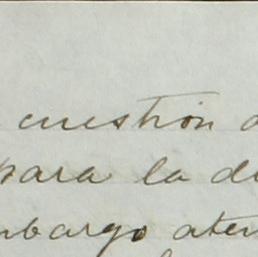 cuestión d
para la di
mbargo aten